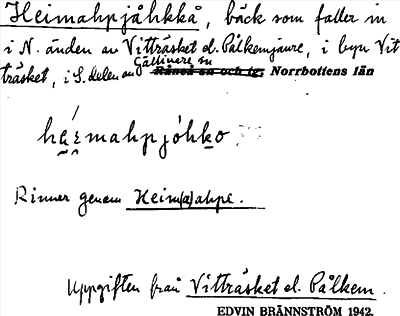 Heimahpjåhkkå, bäck som faller in
i N. änden av Vitträsket el. Pålkemjaure, i byn Vit
träsket, i S. delen av Gällivare sn Råneå sn och tg: Norrbottens län
háɛ́mahpjóhko
Rinner genom Heim(a)ahpe.
Uppgiften från Vitträsket el. Pålkem.
EDVIN BRÄNNSTRÖM 1942.